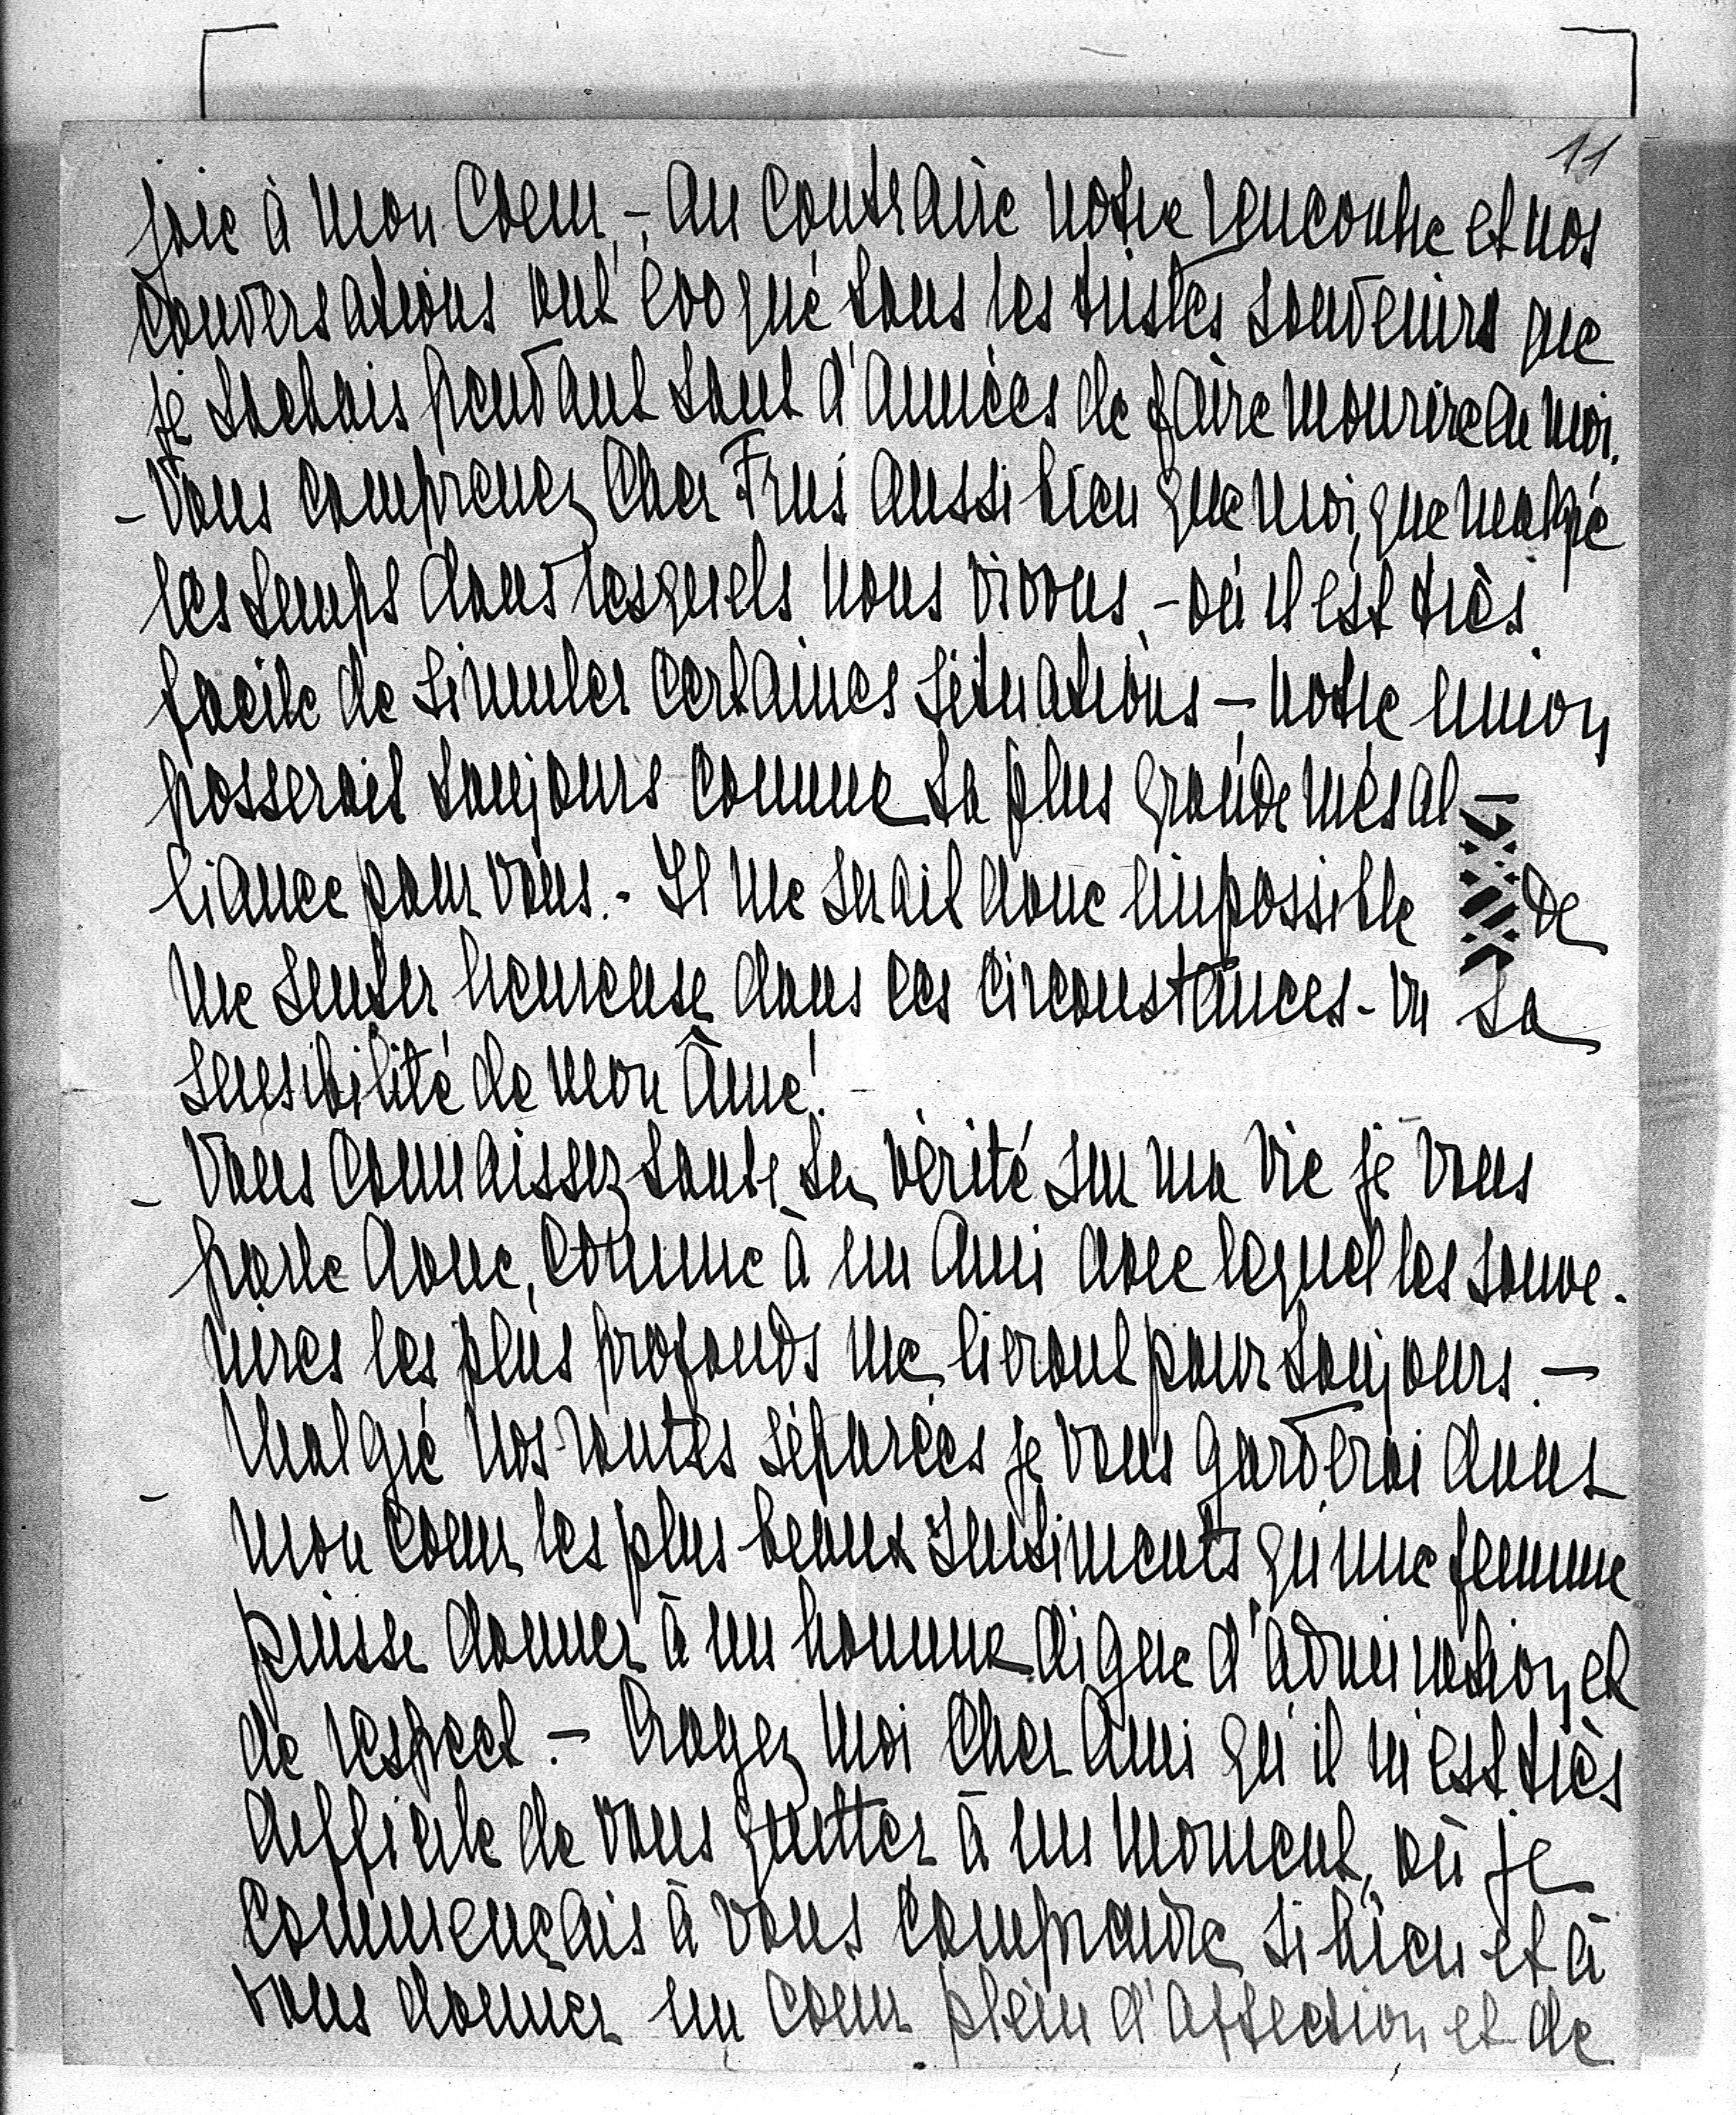 11
joie à mon Coeur, - au Contraire notre rencontre et nos
Conversations ont évoqué tous les tristes souvenirs que
je tachais pendant tant d'années de faire mourire en moi.
- Vous comprenez Cher Frus aussi bien que moi, que malgré
les temps dans lesquels nous vivons, - où il est très
facile de simuler Certaines situations - notre union
passerait toujours comme la plus grande mésal-
liance pour vous. - Il me serait donc impossible de
me sentir heureuse dans ces circonstances - vu la
sensibilité de mon Âme! -
- Vous Connaissez toute la vérité sur ma vie je vous
parle donc, comme à un Ami avec lequel les souve-
nires les plus profonds me lieront pour toujours. -
- Malgré nos routes séparées je vous garderai dans
mon coeur les plus beaux sentiments qu'une femme
puisse donner à un homme digne d'admiration et
de respect. - Croyez moi Cher Ami qu'il m'est très
difficile de vous quitter à un moment, où je
commençais à vous comprendre si bien et à
vous donner un coeur plein d'affection et de